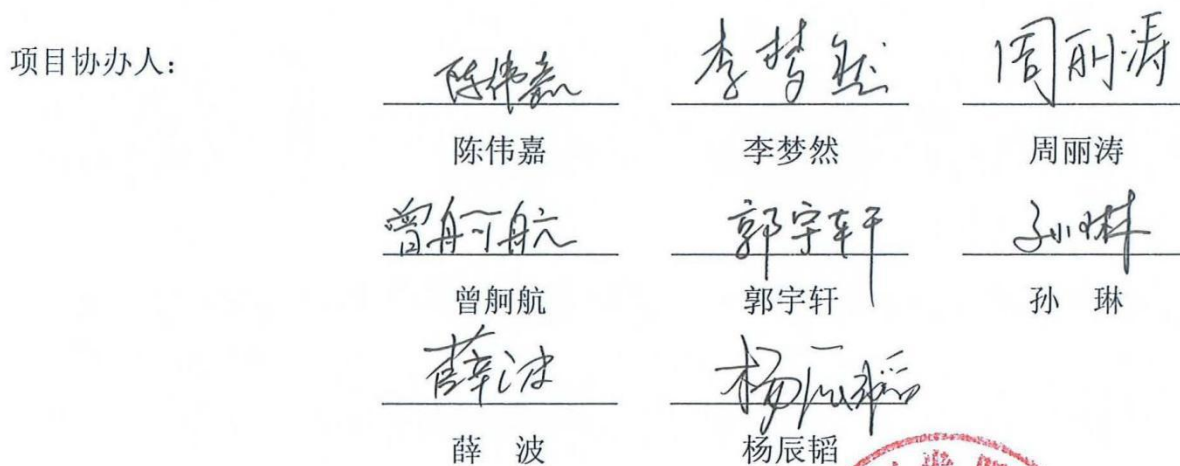 项目协办人：
陈伟嘉 李梦然 周丽涛
陈伟嘉 李梦然 周丽涛
曾舸航 郭宇轩 孙琳
曾舸航 郭宇轩 孙 琳
薛波 杨辰韬
薛 波 杨辰韬